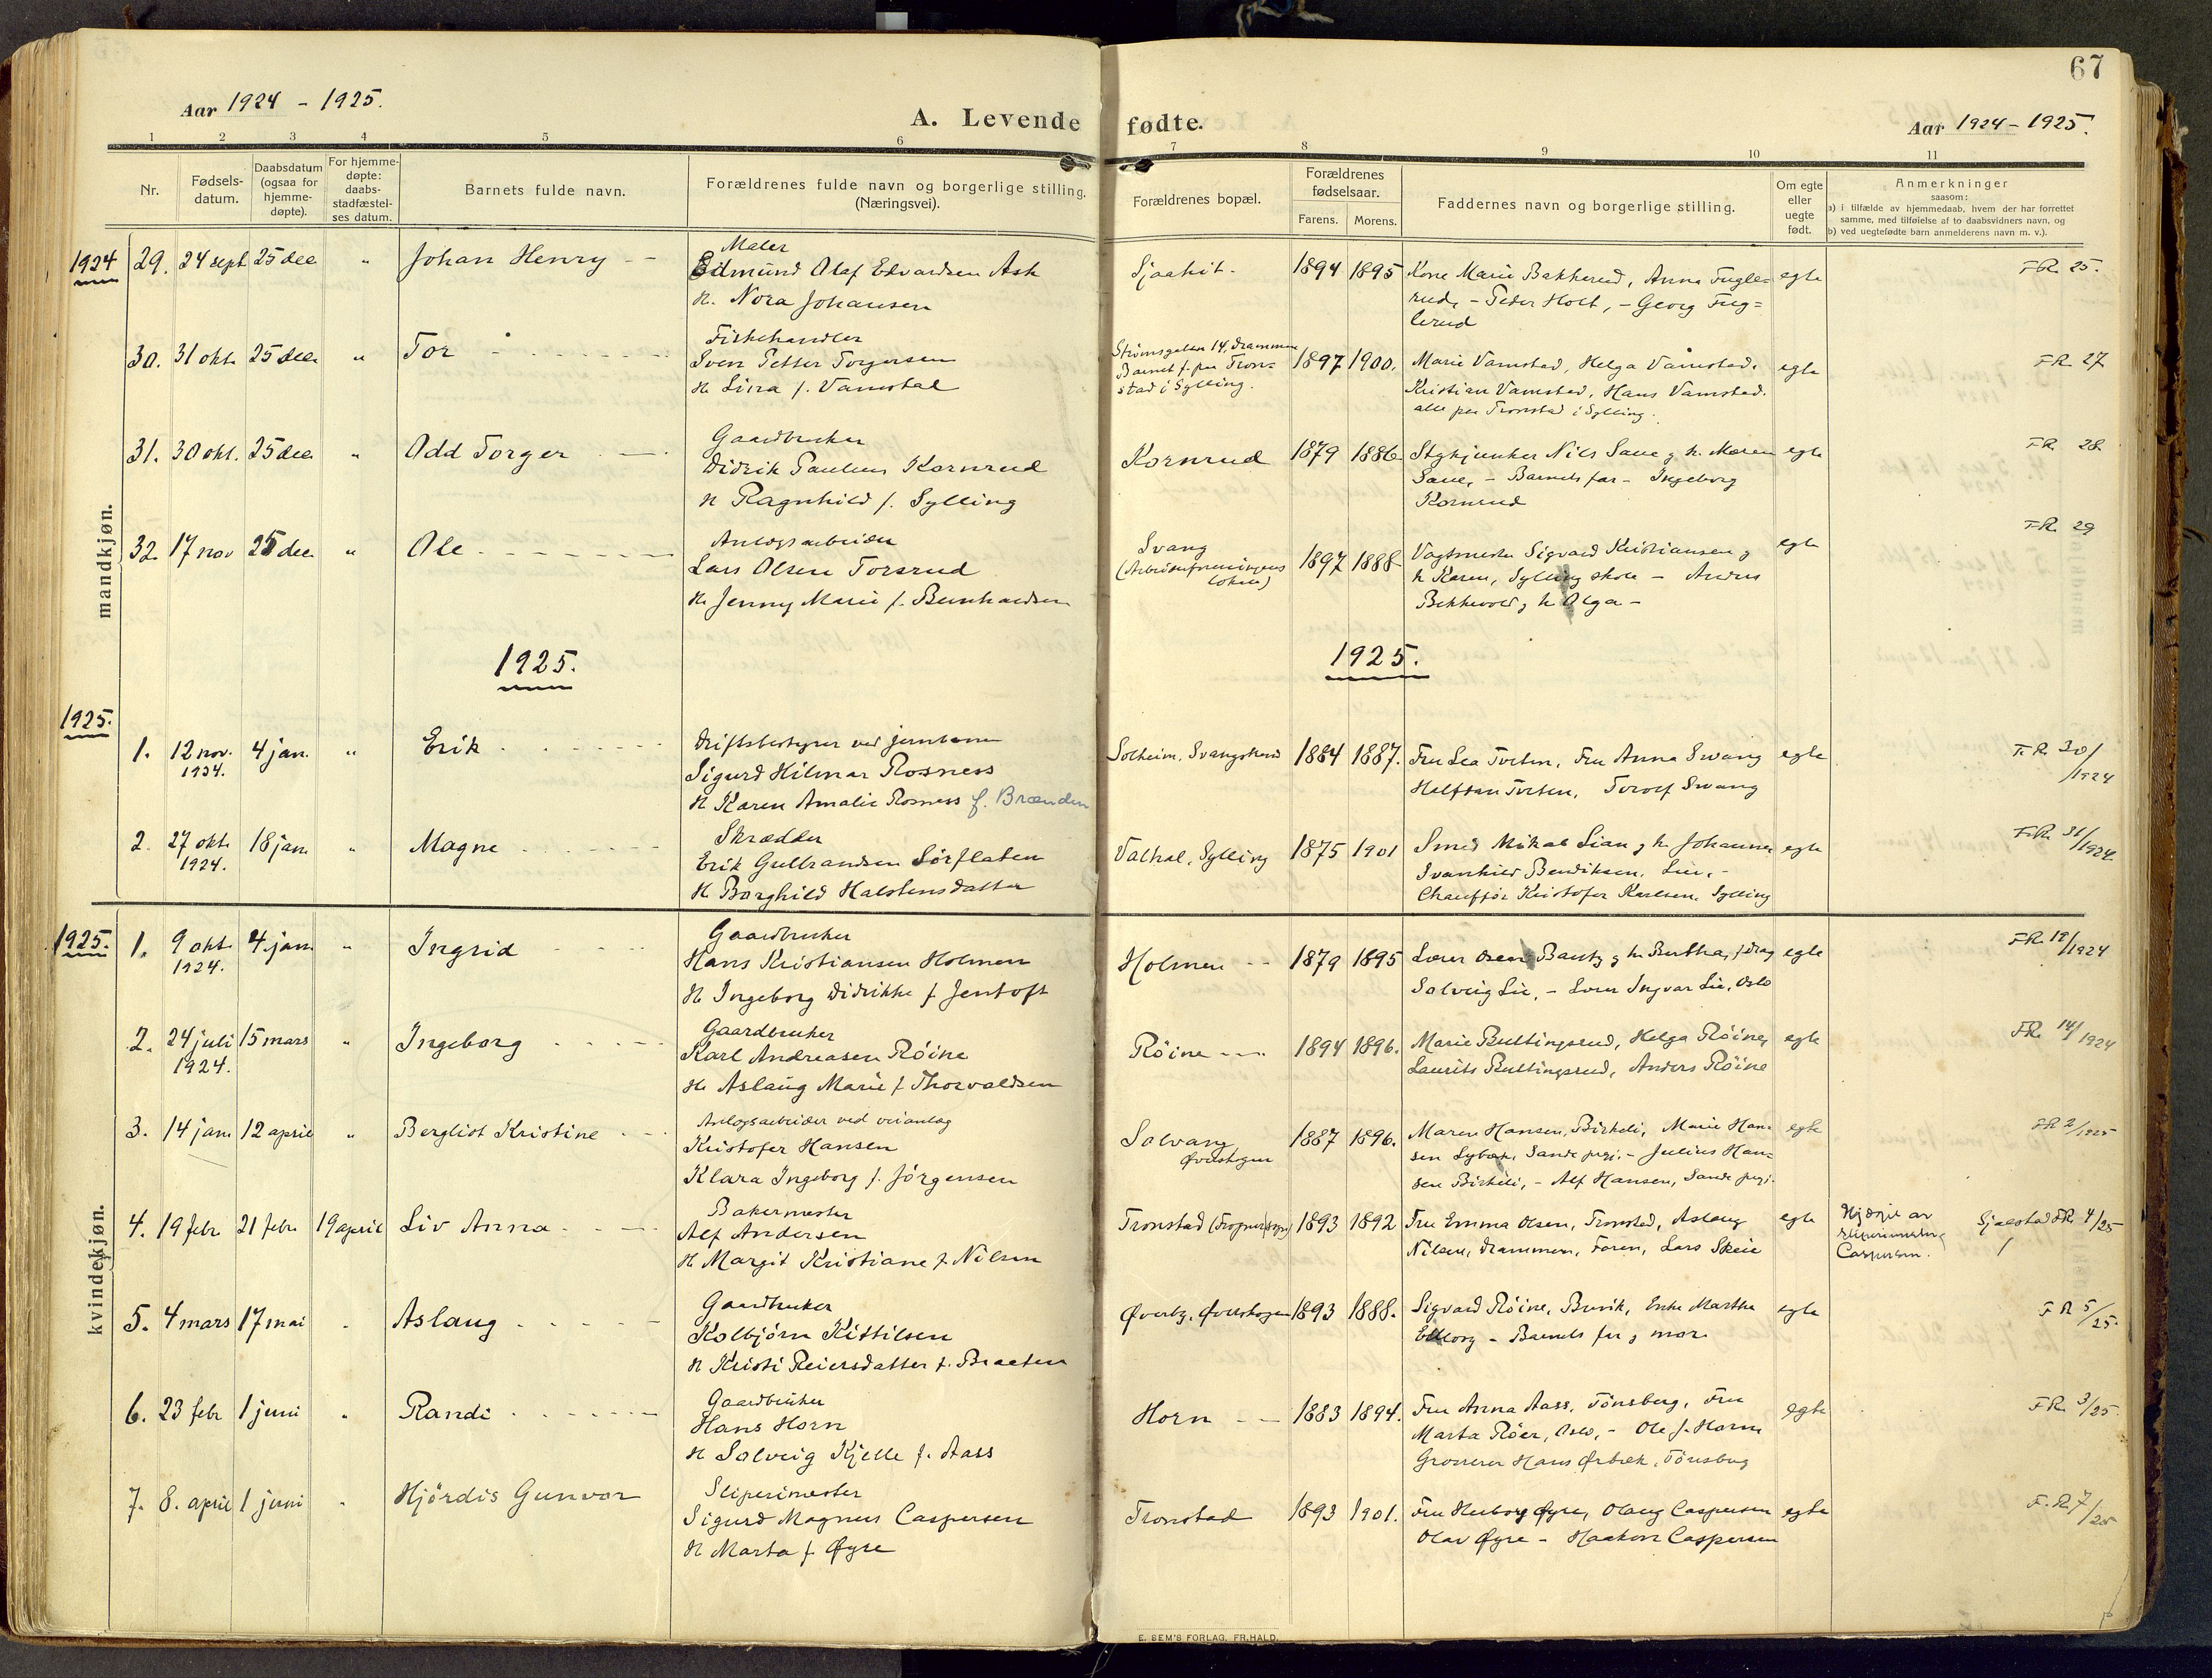 67
Aar 1924 - 1925.
A. Levende fødte.
Aar 1924 - 1925.
1 2 3 4 5 6 7 8 9 10 11
Nr.
Fødsels-
datum.
Daabsdatum
(ogsaa for
hjemme-
døpte).
For hjemme-
døpte:
daabs-
stadfæstel-
ses datum.
Barnets fulde navn.
Forældrenes fulde navn og borgerlige stilling.
(Næringsvei).
Forældrenes bopæl.
Forældrenes
fødselsaar.
Farens. Morens.
Faddernes navn og borgerlige stilling.
Om egte
eller
uegte
født.
Anmerkninger
saasom:
a) i tilfælde av hjemmedaab, hvem der har forrettet
samme, med tilføielse af to daabsvidners navn, og
b) ved uegtefødte barn anmelderens navn m. v.).
mandkjøn.
1924 29. 24 sept 25 dec „ Johan Henry
Maler
Edmund Olaf Edvardsen Ask
H. Nora Johansen
Sjaahit. 1894 1895
Kone Marie Bakkerud, Anna Fugle-
rud, - Peder Holt, - Georg Fug=
lerud
egte FR. 25.
30. 31 okt. 25 dec. „ Tor
Fiskehandler
Sven Petter Torgersen
H. Lina f. Vamstal
Strømsgaten 14, Drammen
Barnet f. paa Tron=
stad i Sylling.
1897 1900.
Marie Vamstad, Helga Vamstad.
Kristian Vamstad, Hans Vamstad.
alle paa Tronstad i Sylling.
egte FR. 27
31. 30 okt. 25 dec. „ Odd Torger
Gaardbruker
Didrik Paulsen Kornrud
H Ragnhild f. Sylling
Kornrud 1879 1886
Nils Saue g h. Maren
Saue, - Barnets far - Ingeborg
Kornrud
egte FR. 28.
32. 17 nov 25 dec. „ Ole
Anlægsarbeider
Lars Olsen Torsrud
H. Jenny Marie f. Bernhardsen
Svang
(Arbeiderforeningens
lokale)
1897 1888
Vagtmester Sigvard Kristiansen g
h Karen, Sylling skole - Anders
Bekkevold g h Olga -
egte FR. 29
1925. 1925.
1925.
1. 12 nov. 1924. 4 jan. „ Erik
Driftsbestyrer ved jernbanen
Sigurd Hilmar Rosness
H Karen Amalie Rosness f. Brænden
Solheim, Svangstrand 1884 1887.
Fru Lea Tortsen, Fru Anna Svang
Halfdan Tortsen, Torolf Svang
egte FR 30/1924
2. 27 okt. 1924. 18 jan. „ Magne
Skrædder
Erik Gulbrandsen Sørflaten
H Borghild Halstensdatter
Valhal, Sylling 1875 1901
Smed Mikal Lian g h Johanne
Svanhild Bendiksen, Lier, -
Chauffør Kristofer Karlsen, Sylling
egte FR. 31/1924.
kvindekjøn.
1925. 1. 9 okt. 1924. 4 jan. „ Ingrid
Gaardbruker
Hans Kristiansen Holmen
H Ingeborg Didrikke f Jentoft
Holmen 1879 1895
Bertha,
Solveig Lie, - Lærer Ingvar Lie, Oslo
egte FR. 19/1924
2. 24 juli 1924. 15 mars „ Ingeborg
Gaardbruker
Karl Andreasen Røine
H. Aslaug Marie f Thorvaldsen
Røine 1894 1896.
Marie Bultingsrud, Helga Røine,
Laurits Bultingsrud, Anders Røine
egte FR. 14/1924
3. 14 jan. 12 april „ Bergliot Kristine
Anlægsarbeider ved veianlæg
Kristofer Hansen
Klara Ingeborg f. Jørgensen
Solvang
Øverskogen
1887 1896.
Maren Hansen, Birkeli, Marie Han-
sen Lybæk, Sande prgj. - Julius Han=
sen Birkeli, - Alf Hansen, Sande prgj.
egte FR 2/1925
4. 19 febr. 21 febr. 19 april Liv Anna
Bakermester
Alf Andersen
H Margit Kristiane f Nilsen
Tronstad 1893 1892
Fru Emma Olsen, Tronstad, Aslaug
Nilsen, Drammen, Faren, Lars Skeie
egte
Hjdøpt av
sliperimester
Caspersen.
Sjaastad FR. 4/25
5. 4 mars 17 mai „ Aslaug
Gaardbruker
Kolbjørn Kittilsen
H Kristi Reiersdatter f. Braaten
Øverby, Øverskogen 1893 1888.
Sigvard Røine, Burvik, Enke Marthe
- Barnets far g mor.
egte FR 5/25.
6. 23 febr 1 juni „ Randi
Gaardbruker
Hans Horn
H Solveig Kjelle f. Aass
Horn 1883 1894.
Fru Anna Aass, Tønsberg, Fru
Marta Røer, Oslo, - Ole J. Horn
Grosserer Hans Ørbæk, Tønsberg
egte FR. 3/25
7. 8. april 1 juni „ Hjørdis Gunvor
Sliperimester
Sigurd Magnus Caspersen
H Marta f Øyre
Tronstad 1893 1901.
Fru Herborg Øyre, Olaug Caspersen
Olav Øyre - Haakon Caspersen
egte F.R. 7/25
E. SEM'S FORLAG, FR.HALD.